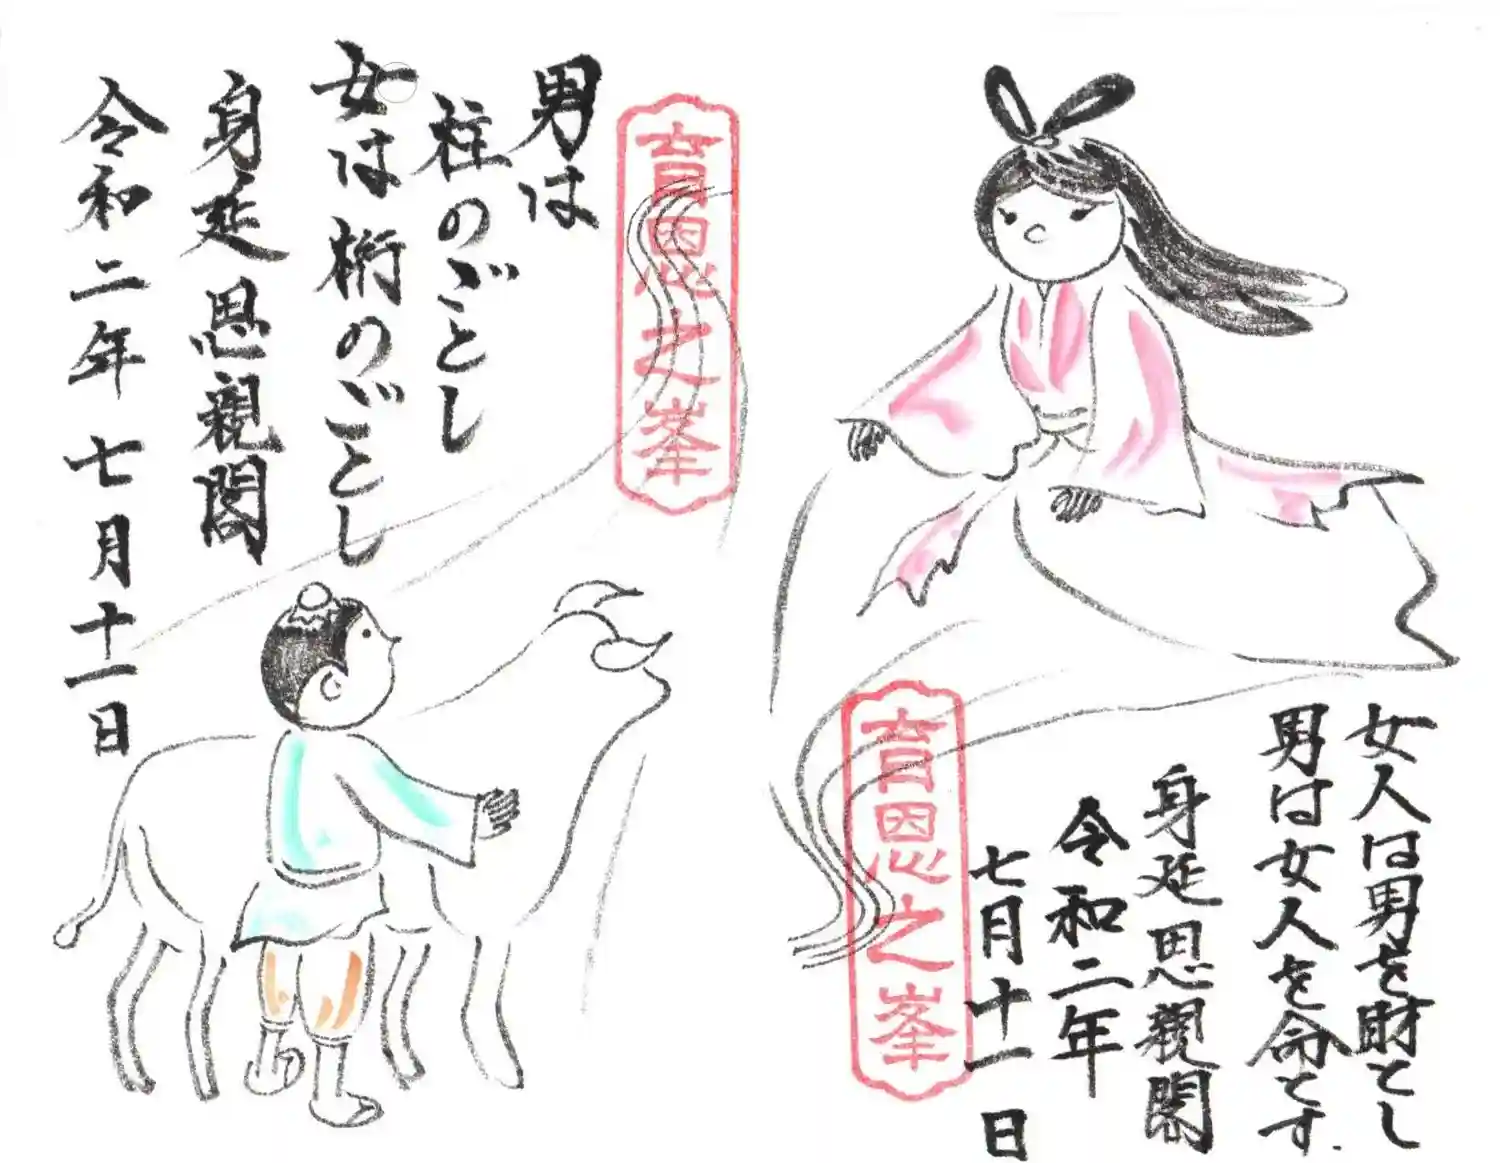 女人は男を財とし
男は女人を命とす
身延思親閣
令和二年
七月十一日
育恩之峯
育恩之峯
男は
柱のごとし
女は桁のごとし
身延思親閣
令和二年七月十一日